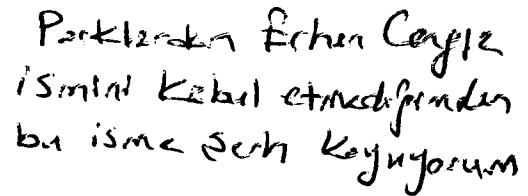 Parklardan Erhan Cengiz
ismini kabul etmediğimden
bu isme şerh koyuyorum